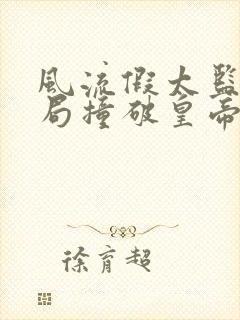 風流假太監
局撞破皇帝
徐育超